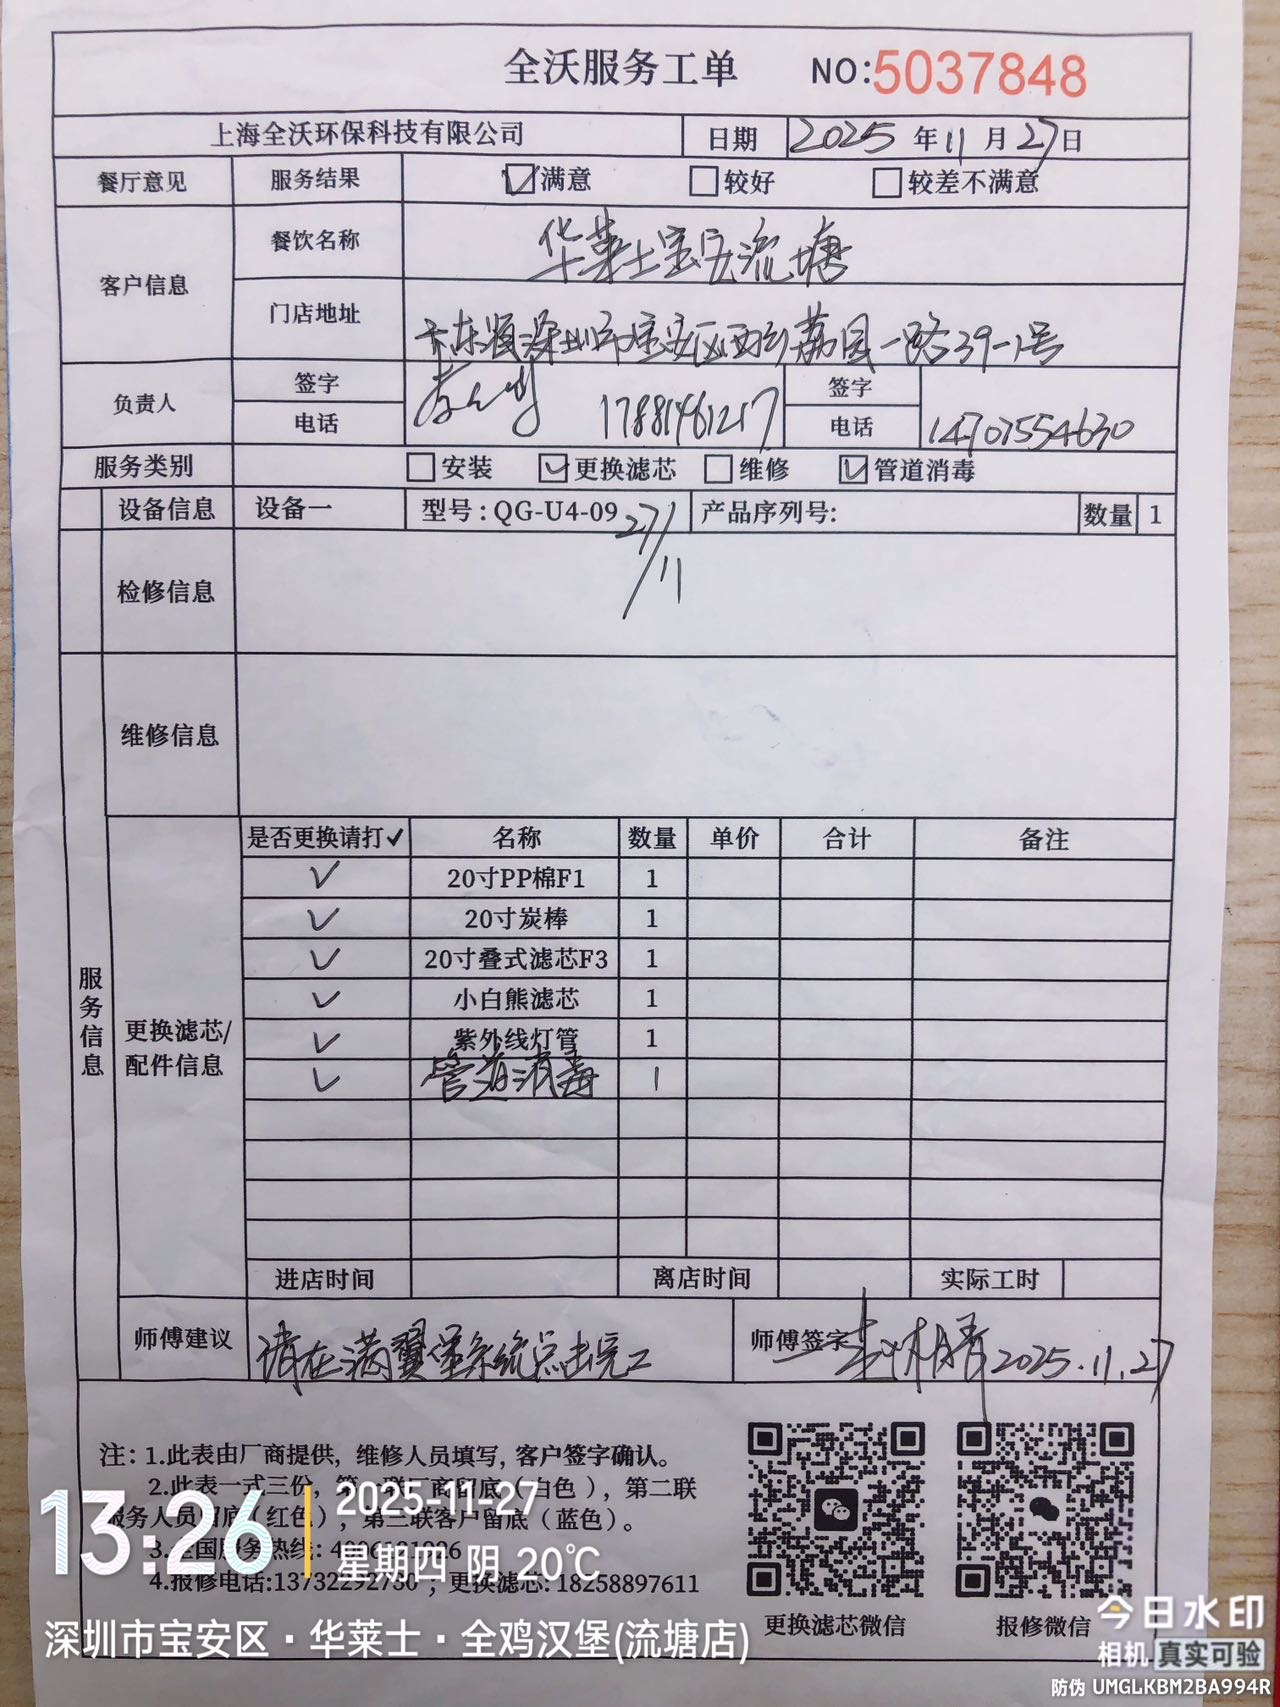 全沃服务工单 NO:5037848
上海全沃环保科技有限公司 日期 2025年11月27日
餐厅意见 服务结果 ☑满意 □较好 □较差不满意
客户信息 餐饮名称 华莱士宝安流塘
门店地址 广东省深圳市宝安区西乡荔园一路39-1号
负责人 签字 签字
电话 17881461217 电话 14707554630
服务类别 □安装 ☑更换滤芯 □维修 ☑管道消毒
设备信息 设备一 型号:QG-U4-09 产品序列号: 数量 1
27/11
检修信息
维修信息
服务信息
更换滤芯/配件信息
是否更换请打✓ 名称 数量 单价 合计 备注
✓ 20寸PP棉F1 1
✓ 20寸炭棒 1
✓ 20寸叠式滤芯F3 1
✓ 小白熊滤芯 1
✓ 紫外线灯管 1
✓ 管道消毒 1
进店时间 离店时间 实际工时
师傅建议 请在满翼堡系统点击完工 师傅签字 2025.11.27
注:1.此表由厂商提供,维修人员填写,客户签字确认。
2.此表一式三份,第一联厂商留底(白色),第二联
服务人员留底(红色),第三联客户留底(蓝色)。
3.全国服务热线:
4.报修电话:13732292730;更换滤芯:18258897611
更换滤芯微信 报修微信
13:26 2025-11-27
星期四 阴 20℃
深圳市宝安区·华莱士·全鸡汉堡(流塘店)
今日水印
相机 真实可验
防伪 UMGLKBM2BA994R